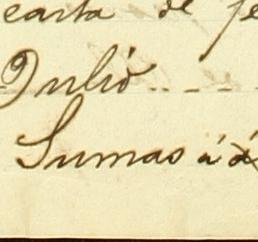 carta de fe
Julio . . - - -
Sumas á á